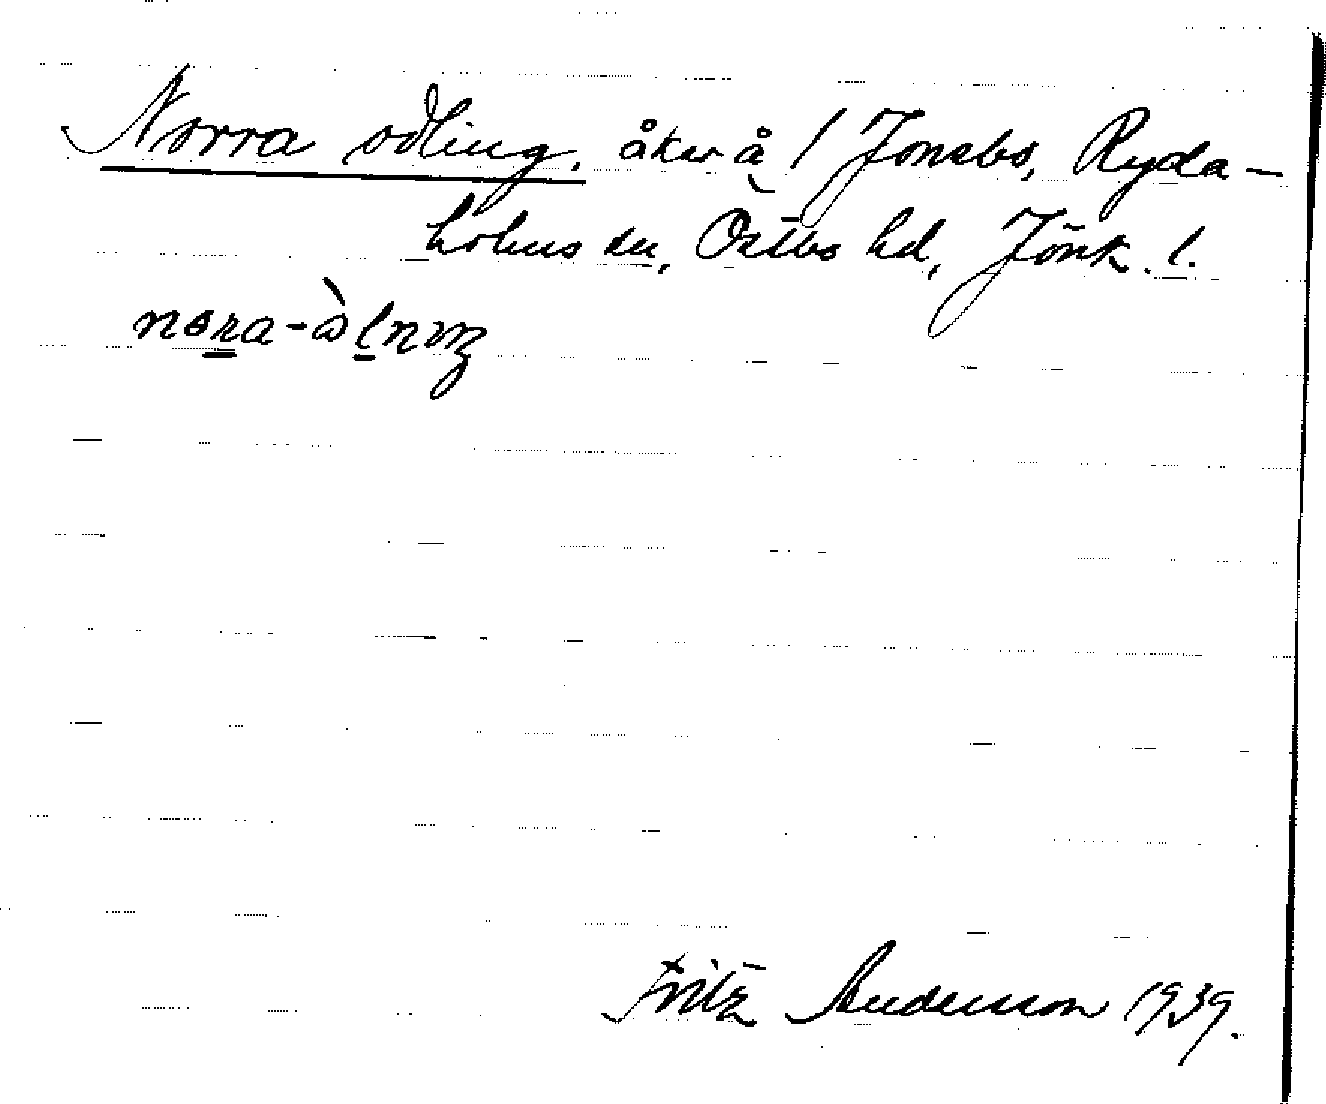 Norra odling, åker å / Jonsbo, Ryda-
holms sn, Östbo hd, Jönk. l.
Fritz Andersson 1939.